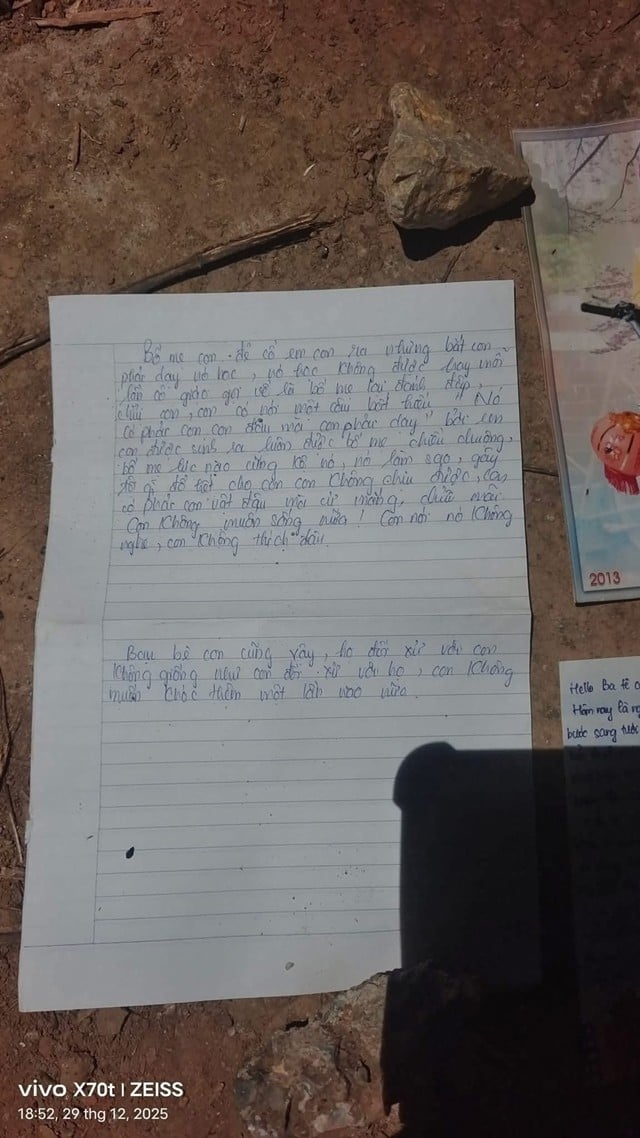 Bố mẹ con đẻ cô em con ra nhưng bắt con
phải dạy nó học, nó học không được hay mỗi
lần cô giáo gọi về là bố mẹ lại đánh đập,
chửi con, con có nói một câu bất hiếu "Nó
có phải con con đâu mà con phải dạy" bởi em
con được sinh ra luôn được bố mẹ chiều chuộng,
bố mẹ lúc nào cũng kể nó, nó làm sao, gây
tội gì đổ hết cho con con không chịu được, con
có phải con vật đâu mà cứ mắng, chửi mãi.
Con không muốn sống nữa! Con nói nó không
nghe, con không thích đâu.
Bạn bè con cũng vậy, họ đối xử với con
không giống như con đối xử với họ, con không
muốn khóc thêm một lần nào nữa.
2013
Hello Ba tê
Hôm nay là
bước sang
vivo X70t | ZEISS
18:52, 29 thg 12, 2025